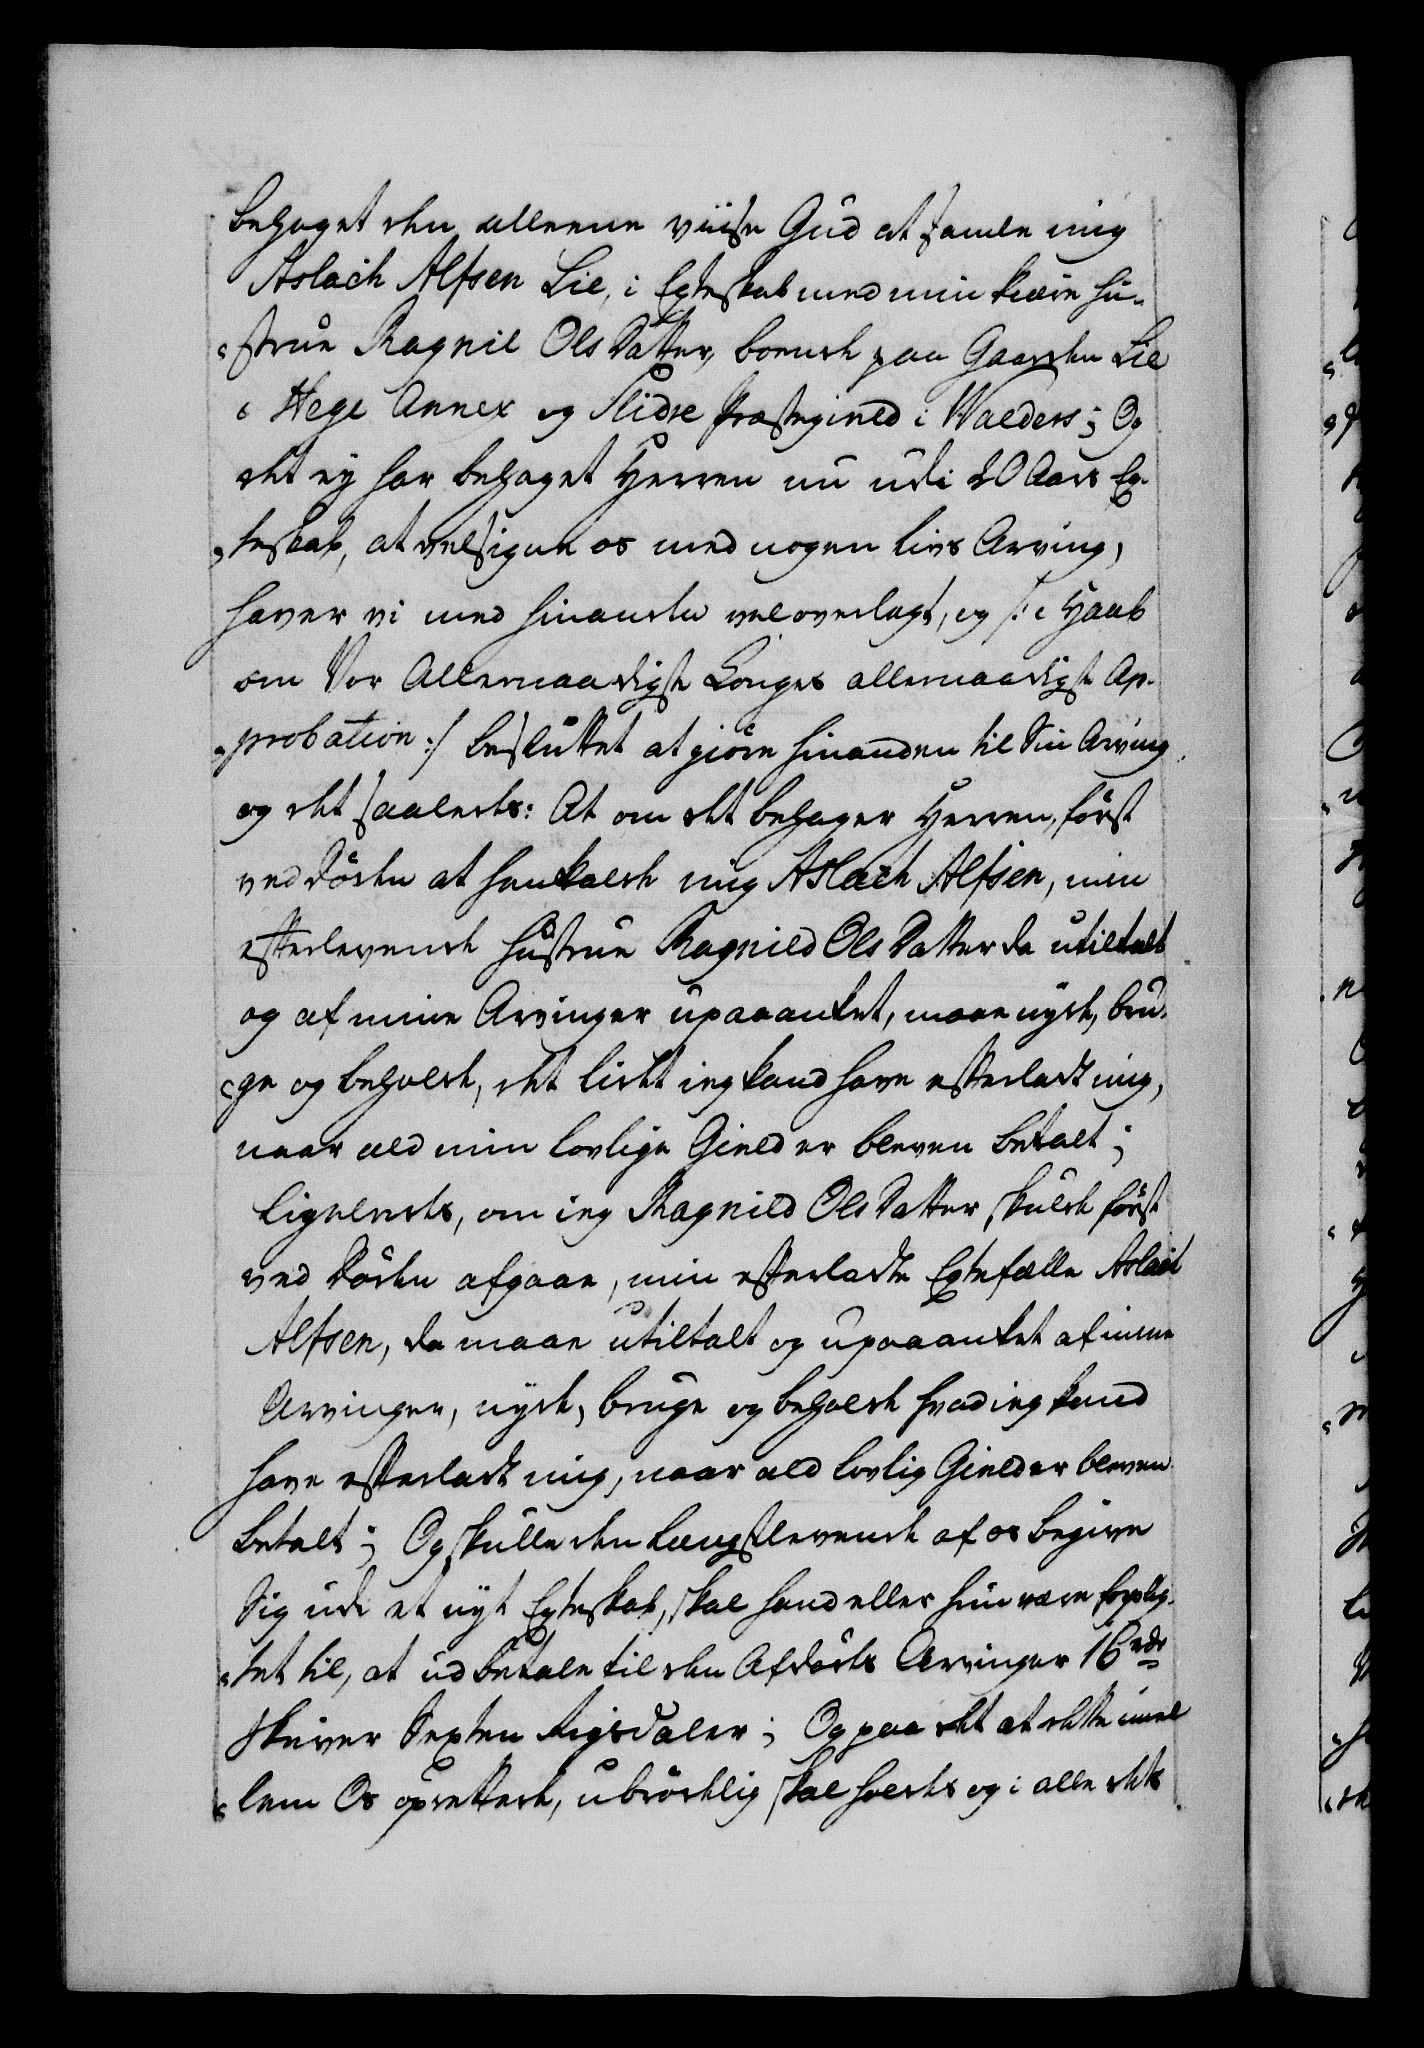 behaget den alleene viise Gud at samle mig
Aslach Alfsen Lie, i Egteskab med min kiære Hu-
strue Ragnil Ols Datter, boende paa Gaarden Lie
i Hege Annex og Slidre Præstegield i Walders; Og
det ey har behaget Herren nu udi 20 Aars Eg-
teskab, at velsigne os med nogen livs Arving,
haver vi med hinanden vel overlagt, og /: i Haab
om Vor Allernaadigste Konges allernaadigste Ap-
probation :/ besluttet at giöre hinanden til Sin Arving
og det saaledes: At om det behager Herren, först
ved döden at henkalde mig Aslach Alfsen, min
efterlevende Hustrue Ragnild Ols Datter da utiltalt
og af mine Arvinger upaaanket, maae nyde, bru-
ge og beholde, det lidet ieg kand have efterladt mig,
naar ald min lovlige Gield er bleven betalt;
Ligeledes, om ieg Ragnild Ols Datter skulde först
ved Döden afgaae, min efterladte Egtefælle Aslach
Alfsen, da maae utiltalt og upaaanket af mine
Arvinger, nyde, bruge og beholde hvad ieg kand
have efterladt mig, naar ald lovlig Gield er bleven
betalt; Og skulle den længstlevende af os begive
Sig udi et nyt Egteskab, skal hand eller hun være forplig-
tet til, at udbetale til den Afdödes Arvinger 16 rdr
skriver Sexten Rigsdaler; Og paa det at dette imel
lem Os oprettede, ubrödelig skal holdes og i alle dets